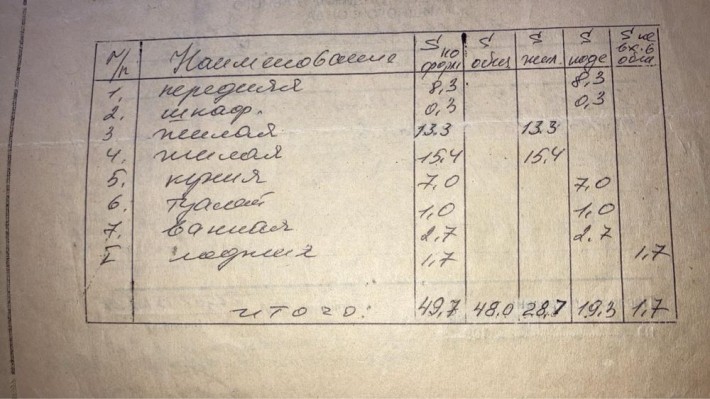 п/п Наименование S по форм S общ S жил. S подс S не вх. в общ
1. передняя 8,3 8,3
2. шкаф. 0,3 0,3
3 жилая 13.3 13.3
4. жилая 15,4 15,4
5. кухня 7,0 7,0
6. туалет 1,0 1,0
7. ванная 2,7 2.7
I лоджия 1,7 1,7
итого: 49,7 48,0 28,7 19,3 1,7